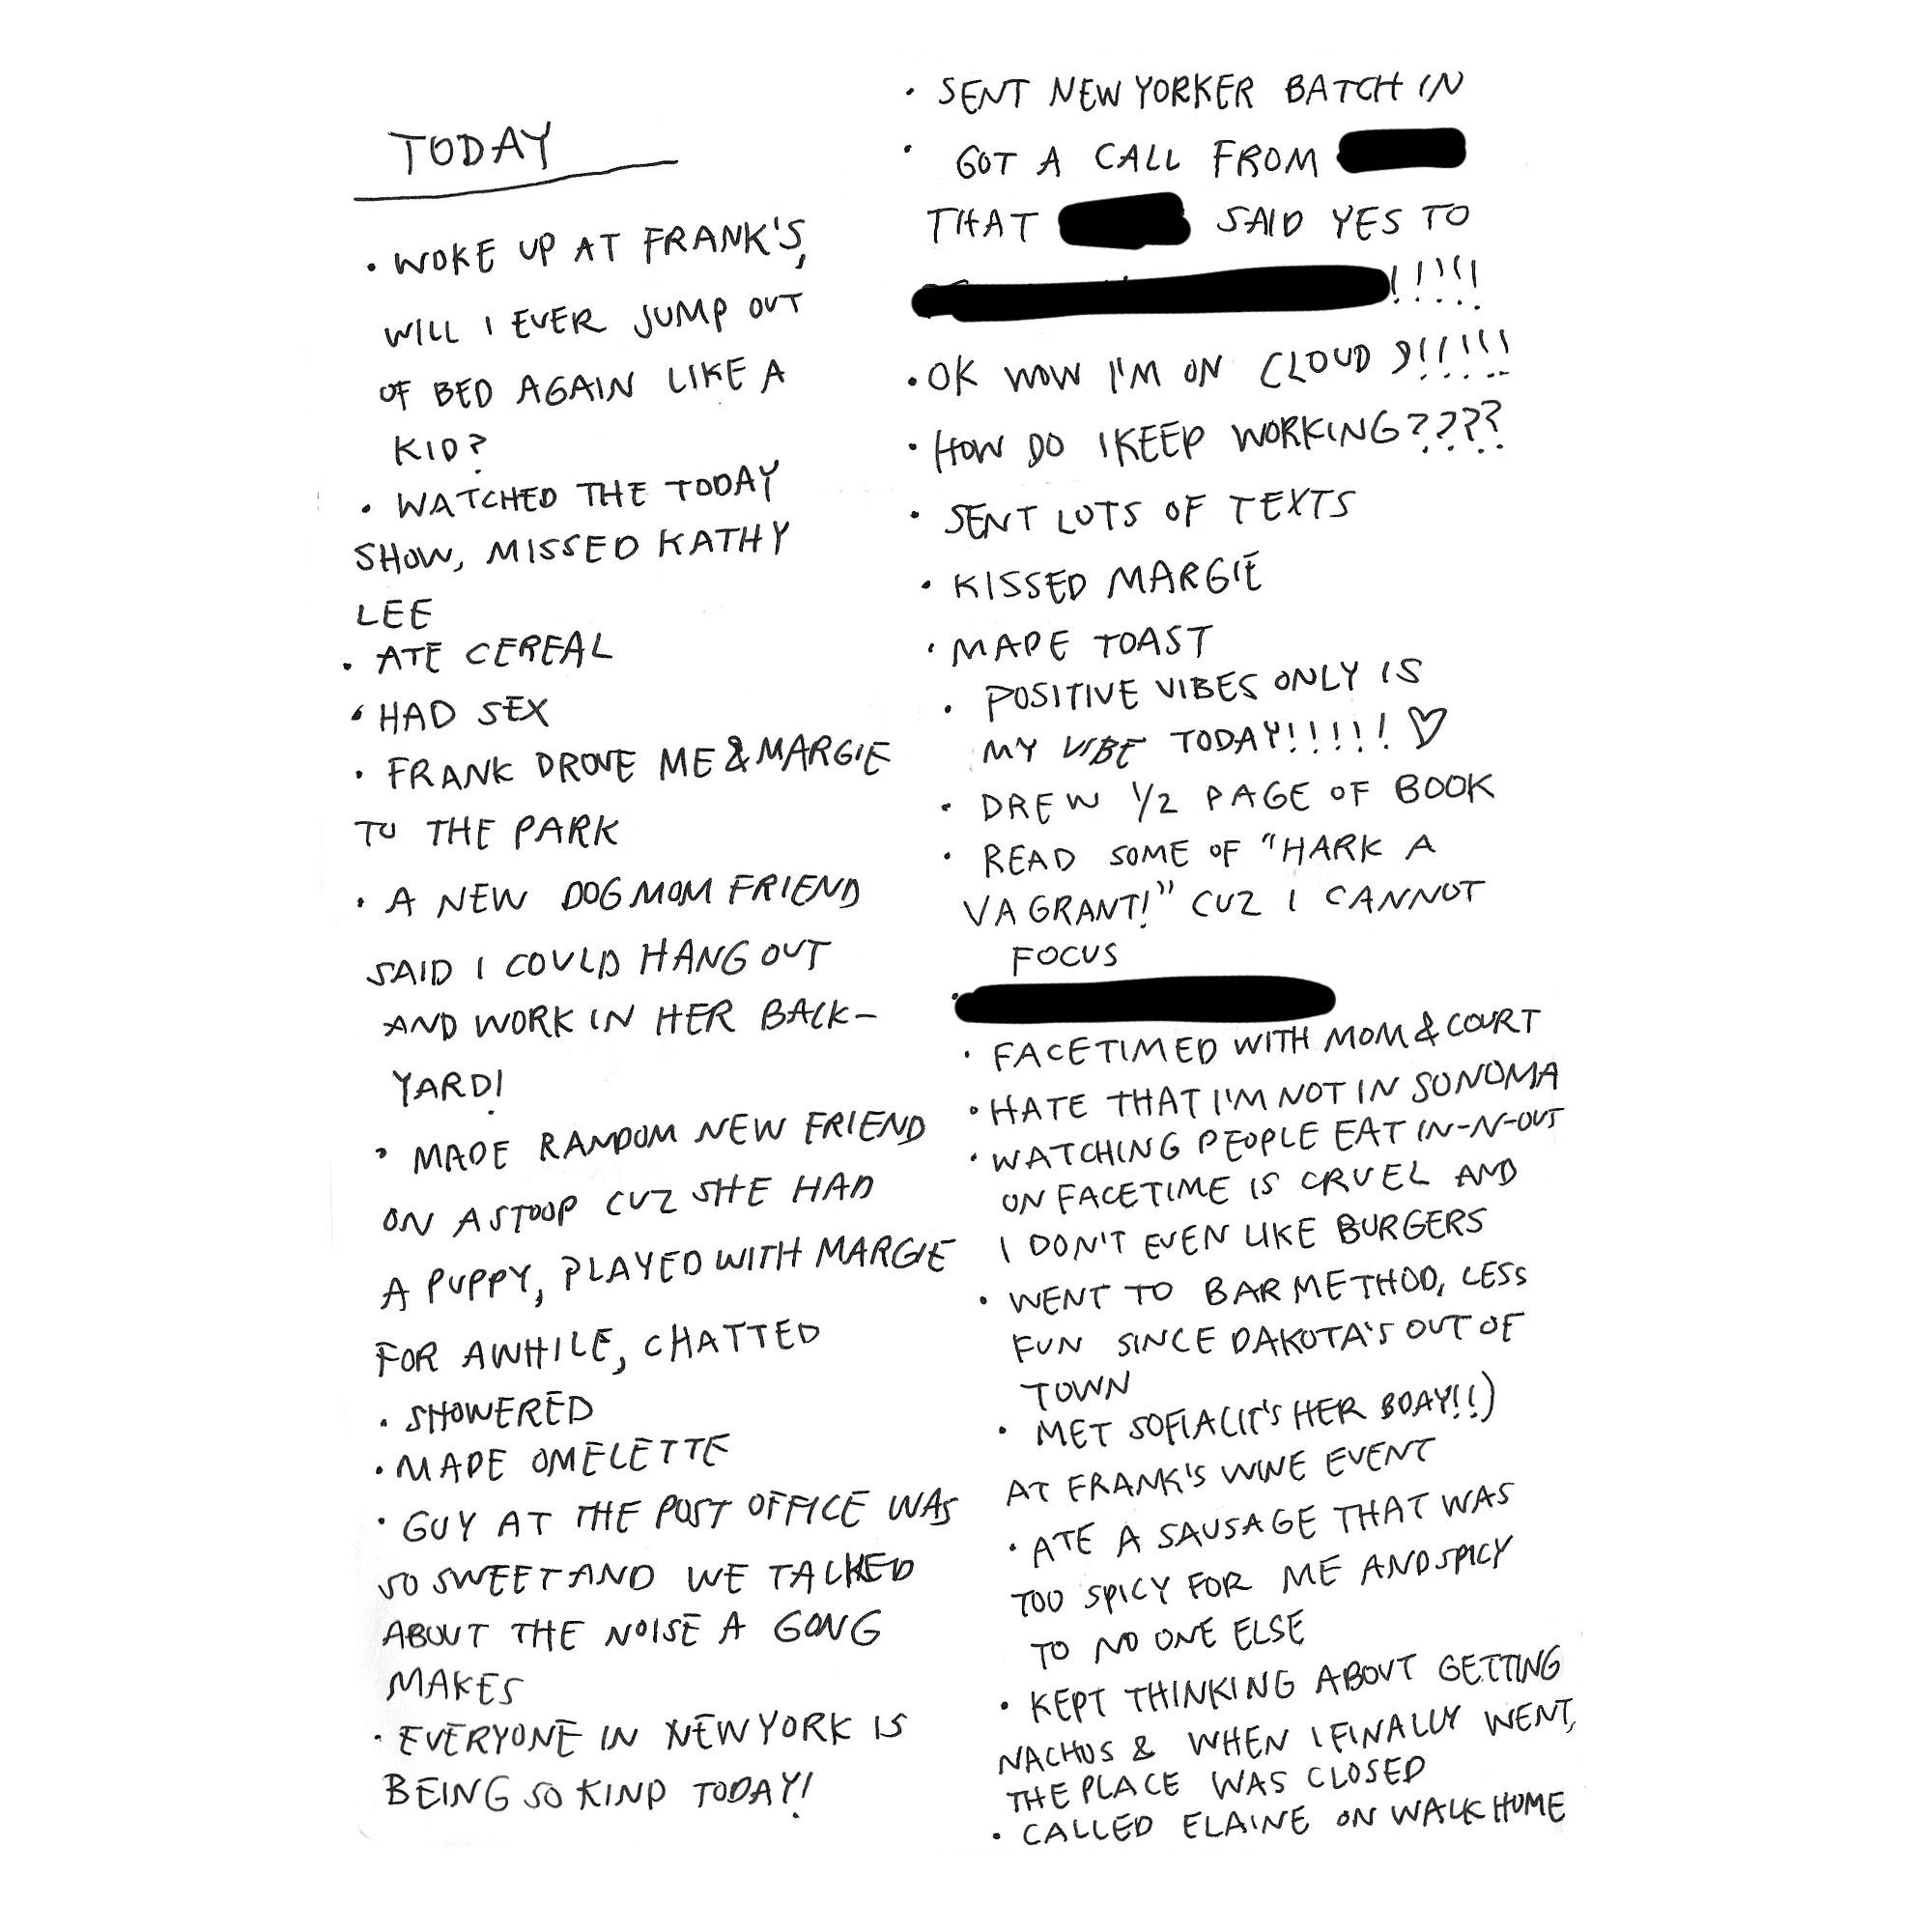 TODAY
• WOKE UP AT FRANK'S,
WILL I EVER JUMP OUT
OF BED AGAIN LIKE A
KID?
• WATCHED THE TODAY
SHOW, MISSED KATHY
LEE
• ATE CEREAL
• HAD SEX
• FRANK DROVE ME & MARGIE
TO THE PARK
• A NEW DOG MOM FRIEND
SAID I COULD HANG OUT
AND WORK IN HER BACK-
YARD!
• MADE RANDOM NEW FRIEND
ON A STOOP CUZ SHE HAD
A PUPPY, PLAYED WITH MARGIE
FOR AWHILE, CHATTED
• SHOWERED
• MADE OMELETTE
• GUY AT THE POST OFFICE WAS
SO SWEET AND WE TALKED
ABOUT THE NOISE A GONG
MAKES
• EVERYONE IN NEW YORK IS
BEING SO KIND TODAY!
• SENT NEW YORKER BATCH IN
• GOT A CALL FROM
THAT SAID YES TO
!!!!!
• OK NOW I'M ON CLOUD 9!!!!!!
• HOW DO I KEEP WORKING????
• SENT LOTS OF TEXTS
• KISSED MARGIE
• MADE TOAST
• POSITIVE VIBES ONLY IS
MY VIBE TODAY!!!!! ♡
• DREW 1/2 PAGE OF BOOK
• READ SOME OF "HARK A
VAGRANT!" CUZ I CANNOT
FOCUS
• FACETIMED WITH MOM & COURT
• HATE THAT I'M NOT IN SONOMA
• WATCHING PEOPLE EAT IN-N-OUT
ON FACETIME IS CRUEL AND
I DON'T EVEN LIKE BURGERS
• WENT TO BAR METHOD, LESS
FUN SINCE DAKOTA'S OUT OF
TOWN
• MET SOFIA (IT'S HER BDAY!!)
AT FRANK'S WINE EVENT
• ATE A SAUSAGE THAT WAS
TOO SPICY FOR ME AND SPICY
TO NO ONE ELSE
• KEPT THINKING ABOUT GETTING
NACHOS & WHEN I FINALLY WENT,
THE PLACE WAS CLOSED
• CALLED ELAINE ON WALK HOME